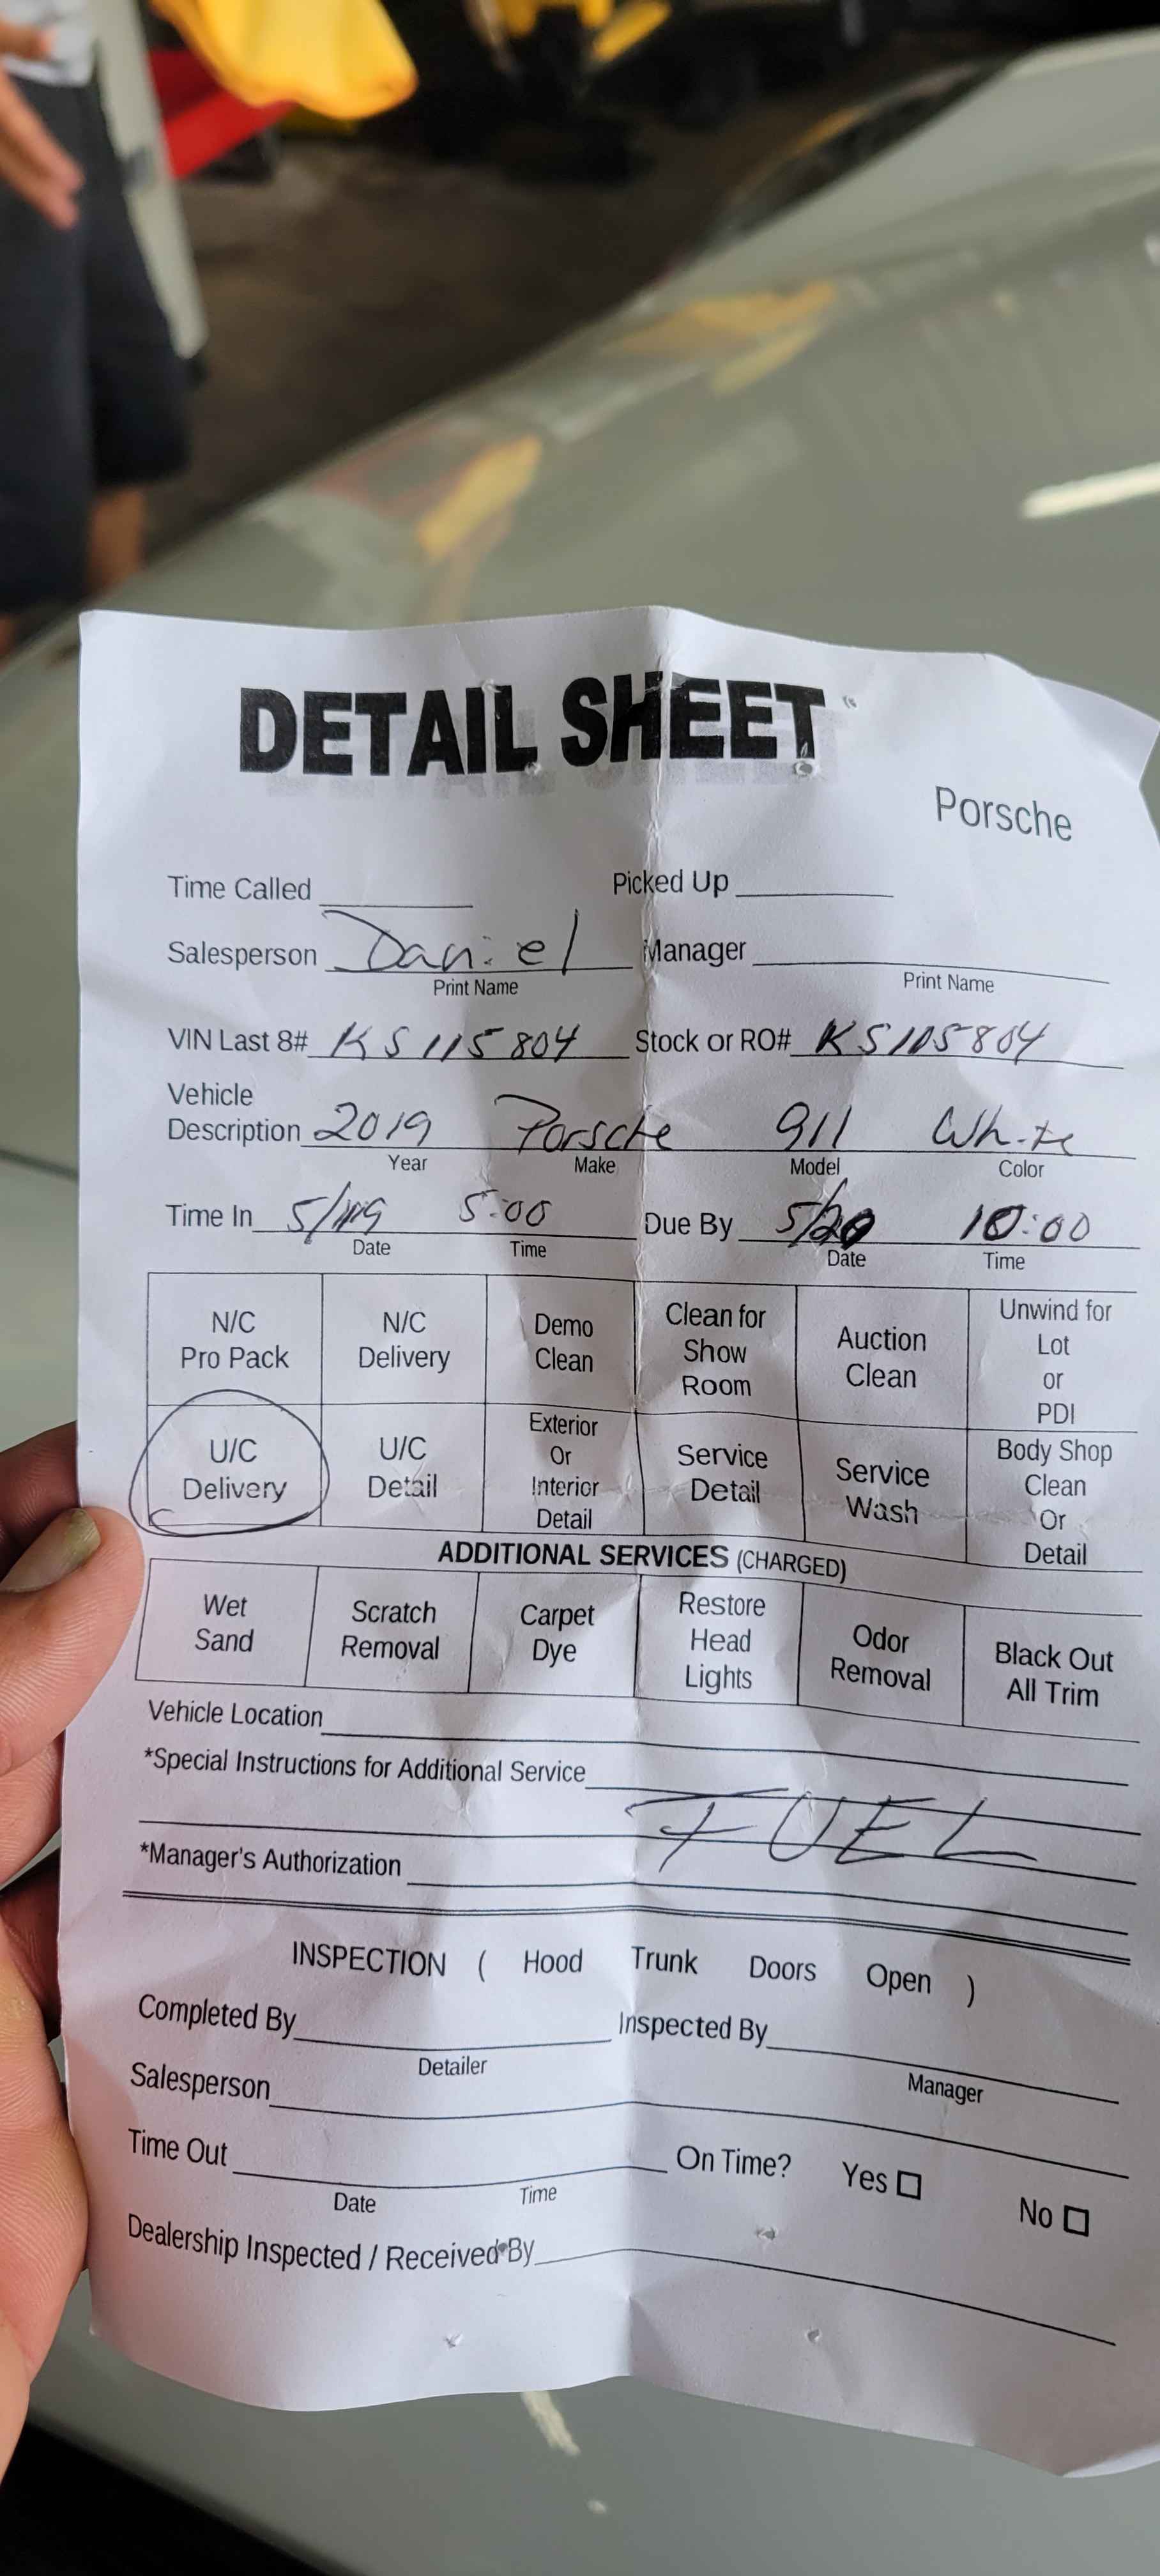 DETAIL SHEET
Porsche
Time Called Picked Up
Salesperson Daniel Manager
Print Name Print Name
VIN Last 8# KS115804 Stock or RO# KS105804
Vehicle
Description 2019 Porsche 911 White
Year Make Model Color
Time In 5/19 5:00 Due By 5/20 10:00
Date Time Date Time
N/C Pro Pack
N/C Delivery
Demo Clean
Clean for Show Room
Auction Clean
Unwind for Lot or PDI
U/C Delivery
U/C Detail
Exterior Or Interior Detail
Service Detail
Service Wash
Body Shop Clean Or Detail
ADDITIONAL SERVICES (CHARGED)
Wet Sand
Scratch Removal
Carpet Dye
Restore Head Lights
Odor Removal
Black Out All Trim
Vehicle Location
*Special Instructions for Additional Service
FUEL
*Manager's Authorization
INSPECTION ( Hood Trunk Doors Open )
Completed By Inspected By
Detailer Manager
Salesperson
Time Out On Time? Yes No
Date Time
Dealership Inspected / Received By